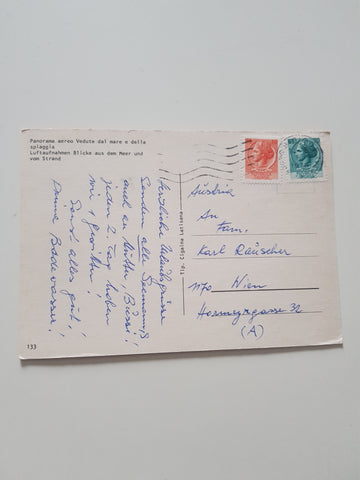 Panorama aereo Vedute dal mare e della
spiaggia
Luftaufnahmen Blicke aus dem Meer und
vom Strand
Herzliche Urlaubsgrüsse
senden alle
auch an Mutter Bussi!
jeden 2. Tag haben
wir
Sonst alles gut,
Deine
Austria
An
Fam.
Karl Rauscher
1170 Wien
Hormayrgasse 32
(A)
133